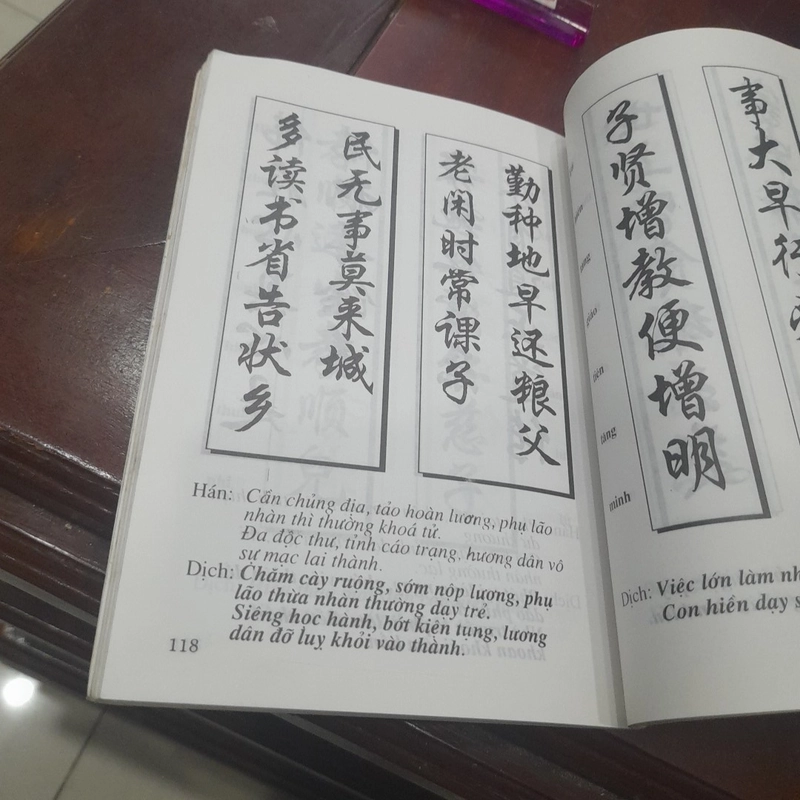 勤种地早还粮父
老闲时常课子
多读书省告状乡
民无事莫来城
Hán: Cần chủng địa, tảo hoàn lương, phụ lão
nhàn thì thường khoá tử.
Đa độc thư, tỉnh cáo trạng, hương dân vô
sự mạc lai thành.
Dịch: Chăm cày ruộng, sớm nộp lương, phụ
lão thừa nhàn thường dạy trẻ.
Siêng học hành, bớt kiện tụng, lương
dân đỡ luỵ khỏi vào thành.
118
事大早行
子贤增教便增明
giáo
minh
Dịch: Việc lớn làm
Con hiền dạy